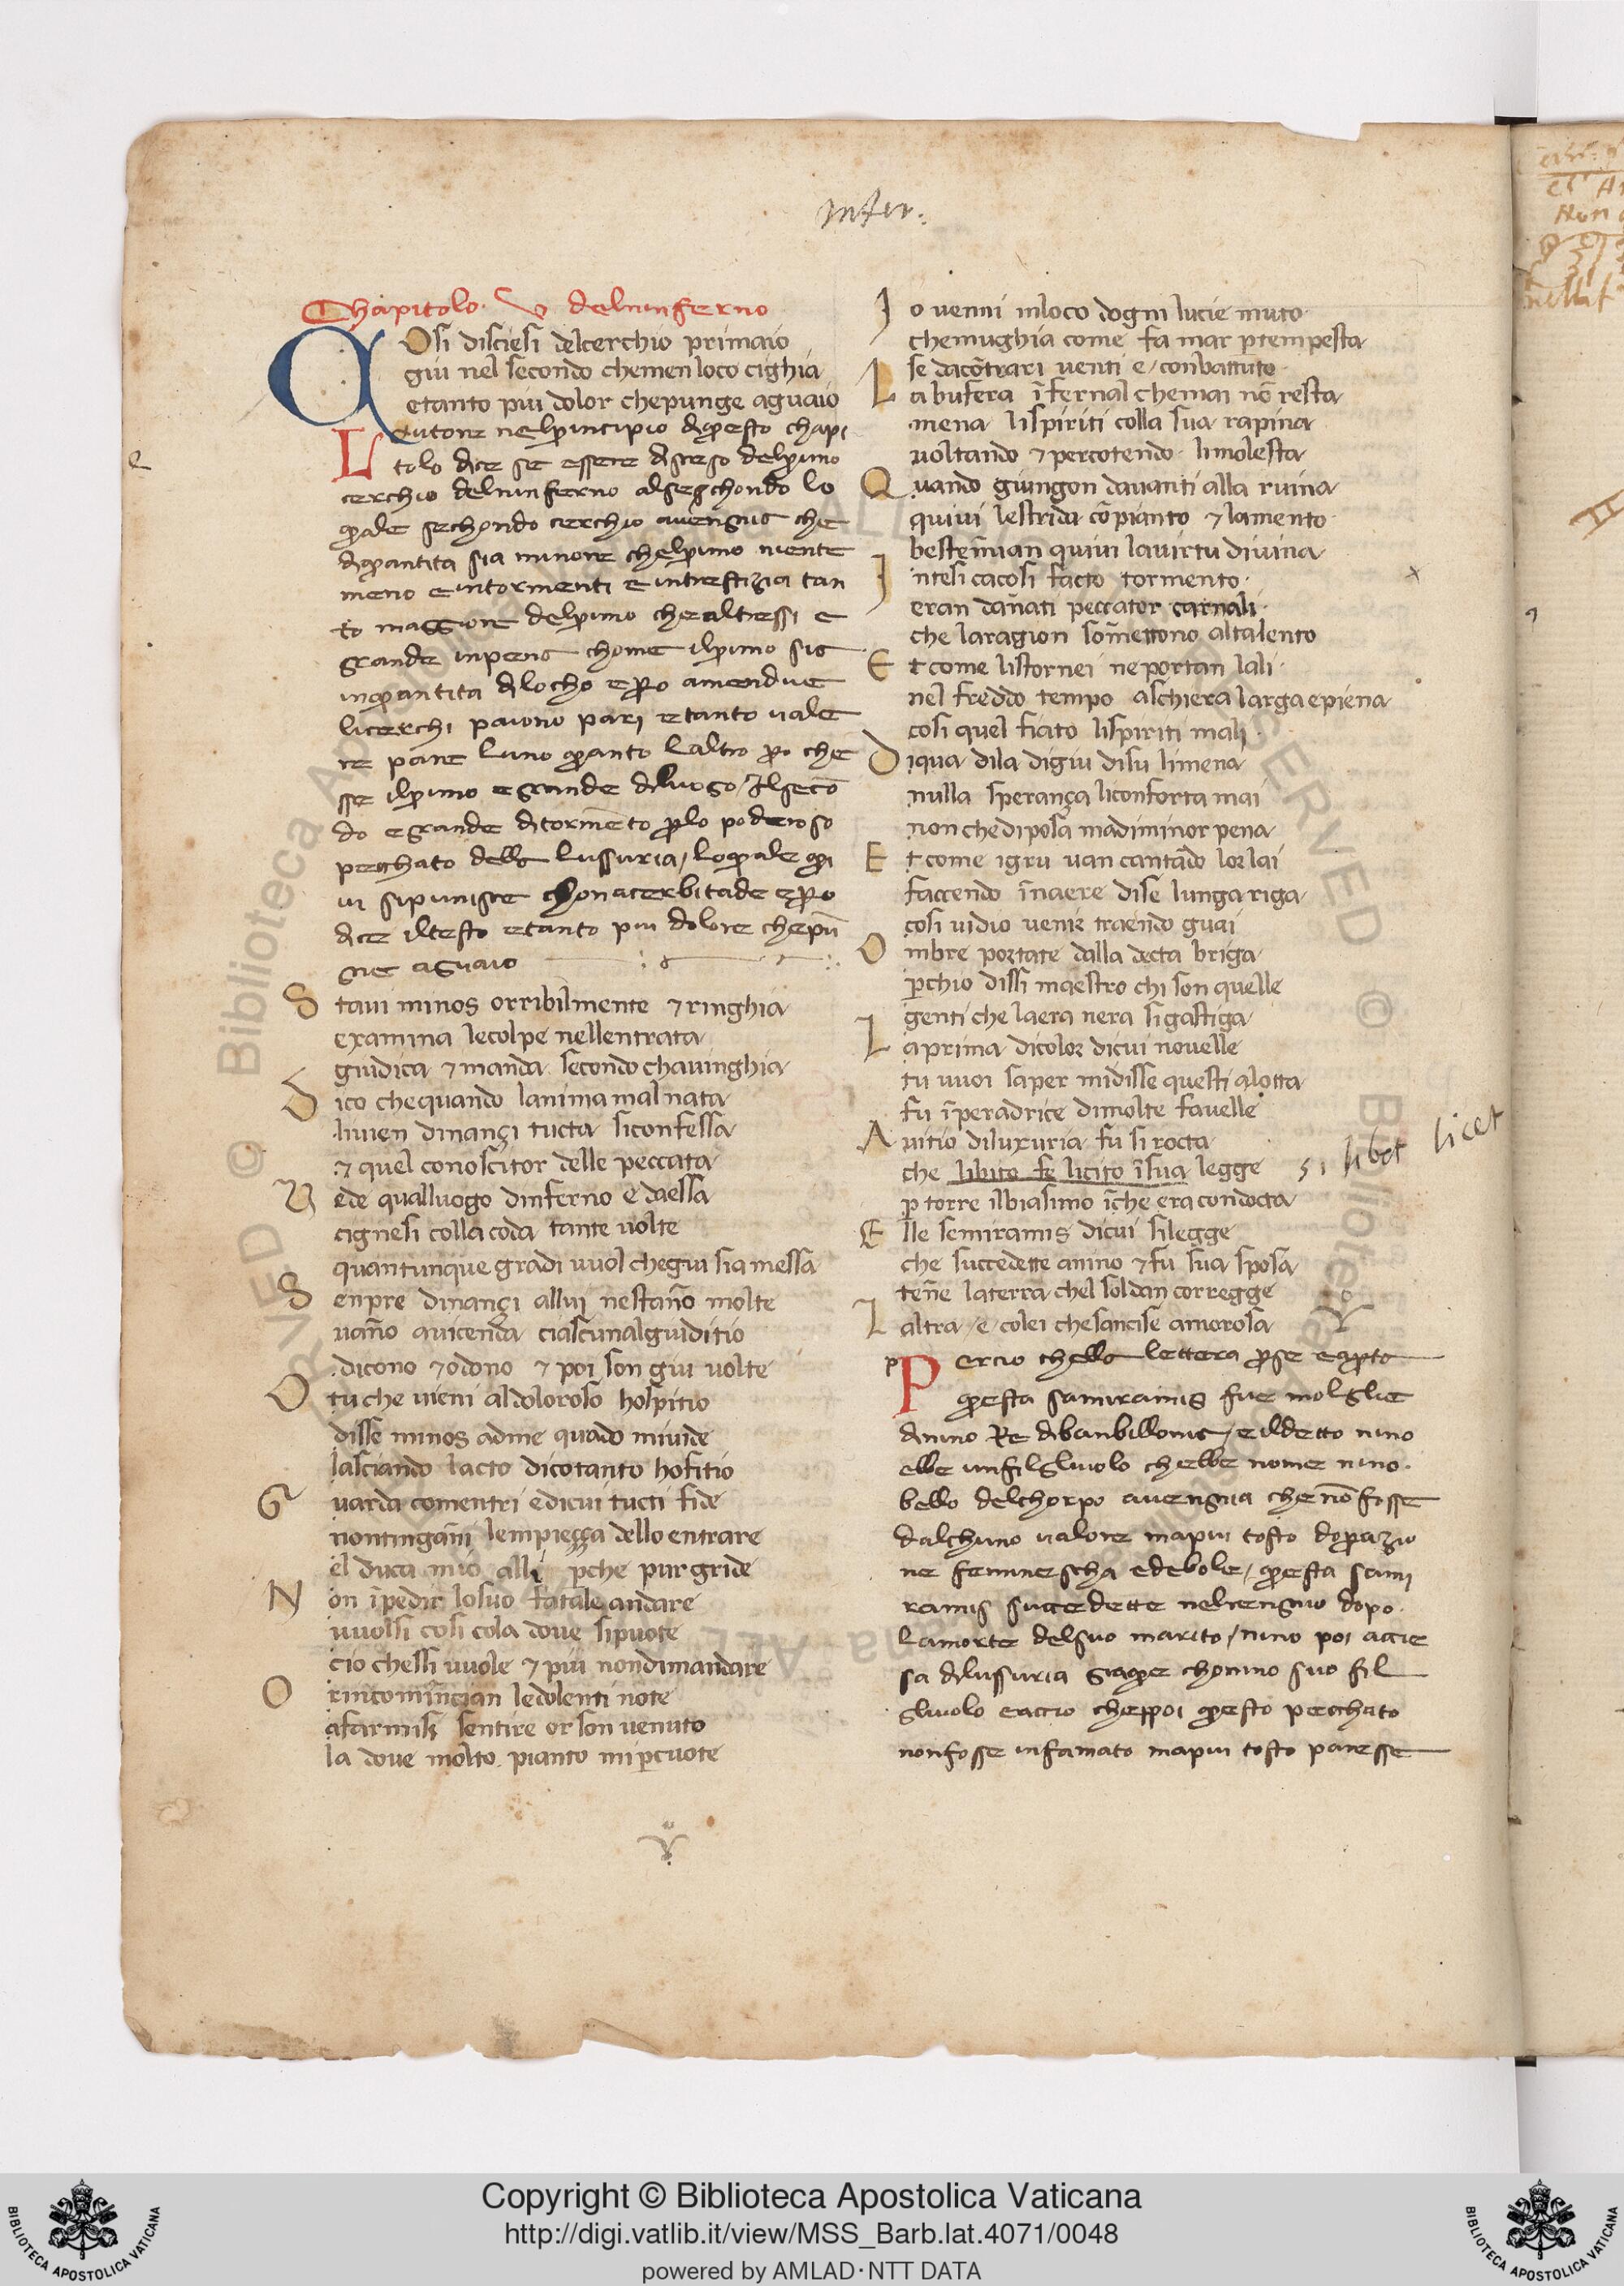 Infer.
Chapitolo. V delninferno
Osi disciesi delcerchio primaio
giu nel secondo chemen loco cighia
etanto piu dolor chepunge aguaio
Lautore nelprincipio dquesto chapi
tolo dice se essere disceso delprimo
cerchio delninferno alseschondo lo
quale sechondo cerchio avengnia che
dquantita sia minore chelprimo niente
meno eintormenti e intrestizia tan
to maggiore delprimo chealtressi e
grande inpena chome ilprimo sia
inquantita dlocho epero amendue
licerchi paiono pari etanto vale
re pare luno quanto laltro pero che
sse ilprimo egrande diluogo / Ilseco͞
do egrande ditorme͞to perlo poderoso
pecchato della lussuria / loquale qui
vi sipunisce chonacerbitade epero
dice iltesto etanto piu dolore chepu͞
gne aguaio
S taui minos orribilmente ⁊ ringhia
examina lecolpe nellentrata
giudica ⁊ manda secondo chauinghia
D ico chequando lanima mal nata
liuien dinançi tucta siconfessa
⁊ quel conoscitor delle peccata
V ede qualluogo dinferno e daessa
cignesi colla coda tante uolte
quantunque gradi uuol chegiu sia messa
S enpre dinançi allui nesta͞no molte
ua͞no auicenda ciascunalguiditio
dicono ⁊ odono ⁊ poi son giu uolte
O tu che uieni aldoloroso hospitio
disse minos adme qua͞do miuide
lasciando lacto dicotanto hofitio
G uarda comentri edicui tucti fide
nontinga͞ni lempieçça dello entrare
el duca mio alli p̱che pur gride
N on i͞pedir losuo fatale andare
uuolsi cosi cola doue sipuote
cio chessi uuole ⁊ piu nondimandare
O rincomi͞ncian ledolenti note
afarmisi sentire or son uenuto
la doue molto pianto mi p̱cuote
I o uenni inloco dogni lucie muto
chemughia come fa mar p̱tempesta
se daco͞trari uenti e / conbattuto
L a bufera i͞fernal chemai no͞ resta
mena lispiriti colla sua rapina
uoltando ⁊ percotendo limolesta
Q uando giungon dauanti alla ruina
quiui lestrida co͞pianto ⁊ lamento
beste͞mian quiui lauirtu diuina
I ntesi cacosi facto tormento
eran da͞nati peccator carnali
che laragion so͞mettono altalento
E t come listornei ne portan lali
nel freddo tempo aschiera larga epiena
cosi quel fiato lispiriti mali
D iqua dila digiu disu limena
nulla sperança liconforta mai
non chediposa madiminor pena
E t come igru uan canta͞do lor lai
faccendo i͞naere dise lunga riga
cosi uidio uenir traendo guai
O mbre portate dalla decta briga
p̱chio dissi maestro chi son quelle
genti che laera nera sigastiga
L aprima dicolor dicui nouelle
tu uuoi saper midisse questi alotta
fu i͞peradrice dimolte fauelle
A uitio diluxuria fu si rocta
che libito fe licito i͞sua legge
si libet licet
p̱ torre ilbiasimo i͞che era condocta
E lle semiramis dicui silegge
che succedette anino ⁊ fu sua sposa
te͞ne laterra chel soldan corregge
L altra / e / colei chesancise amorosa
P ercio chella lettera perse eaperta
questa samiramis fue molglie
dinino Re dibanbillonia / e ildetto nino
ebbe unfilgliuolo chebbe nome nino
bello delchorpo avengnia cheno͞fosse
dalchuno valore mapiu tosto doperazio
ne femminescha edebole / questa sami
ramis succedette nelrengnio dopo
lamorte delsuo marito / nino poi accie
sa dilussuria giaque chonnino suo fil
gliuolo eaccio cheppoi questo pecchato
nonfosse infamato mapiu tosto paresse
Copyright © Biblioteca Apostolica Vaticana
http://digi.vatlib.it/view/MSS_Barb.lat.4071/0048
powered by AMLAD·NTT DATA